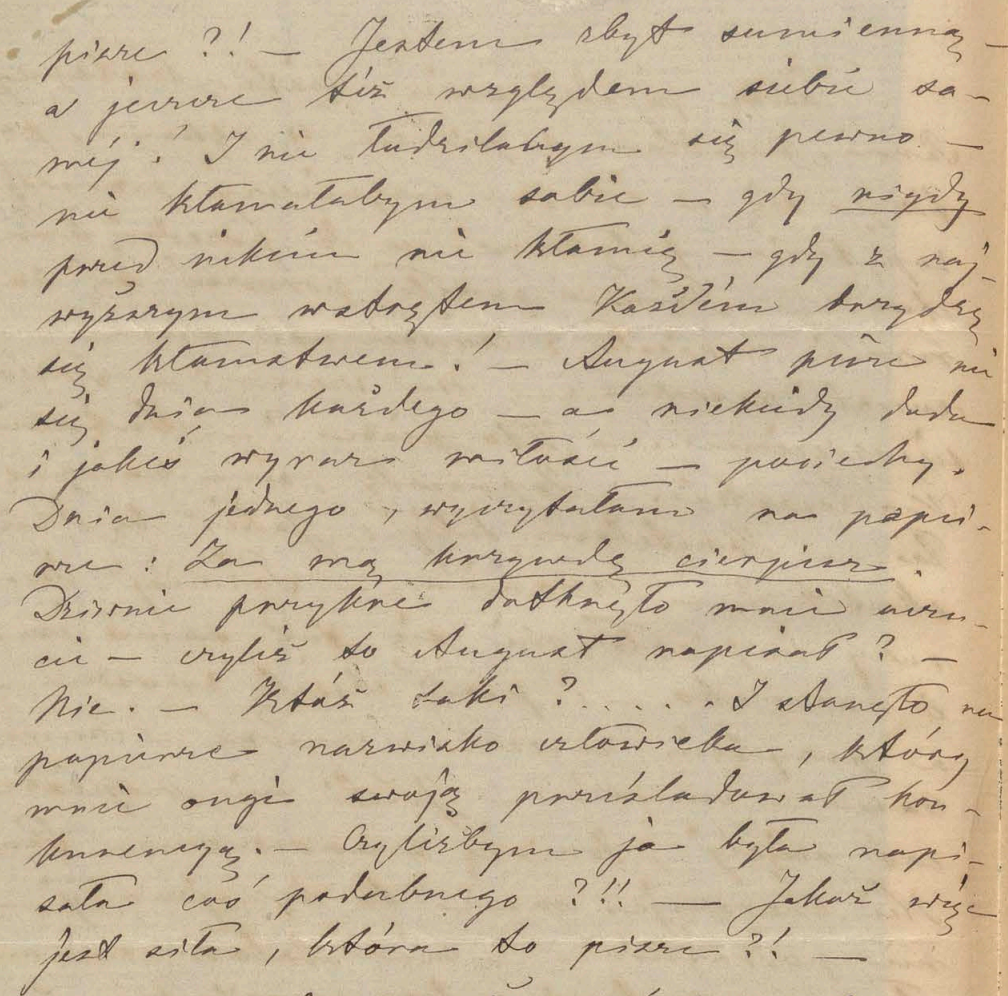 pisze ?! — Jestem zbyt sumienną —
a jeszcze też względem siebie sa-
méj! I nie łudziłabym się pewno —
nie kłamałabym sobie — gdy nigdy
przed nikim nie kłamię — gdy z naj-
wyższym wstrętem każdém brzydzę
się kłamstwem! — August pisze mi
się dnia każdego — a niekiedy doda
i jakiś wyraz miłości — pociechy.
Dnia jednego, wyczytałam na papie-
rze: Za mą krzywdę cierpisz.
Dziwnie przykre dotknęło mnie uczu-
cie — czyliż to August napisał? —
Nie. — Któż taki? . . . . . . I stanęło na
papierze nazwisko człowieka, który
mnie ongi swoją prześladował kon-
kurencyą. — Czyliżbym ja była napi-
sała coś podobnego ?!! — Jakaż więc
jest siła, która to pisze ?! —